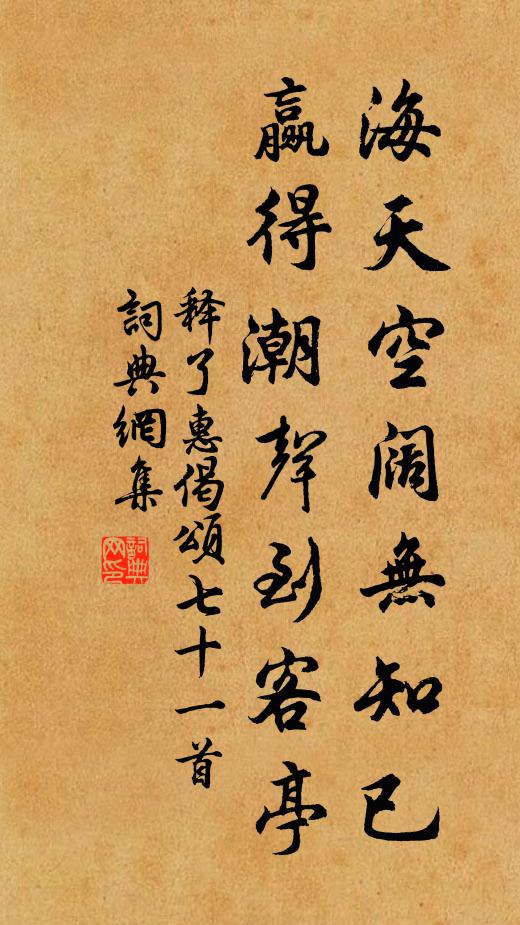 海天空阔無知已
贏得潮聲到客亭
释了惠偈頌七十一首
詞典網集
詞典网印